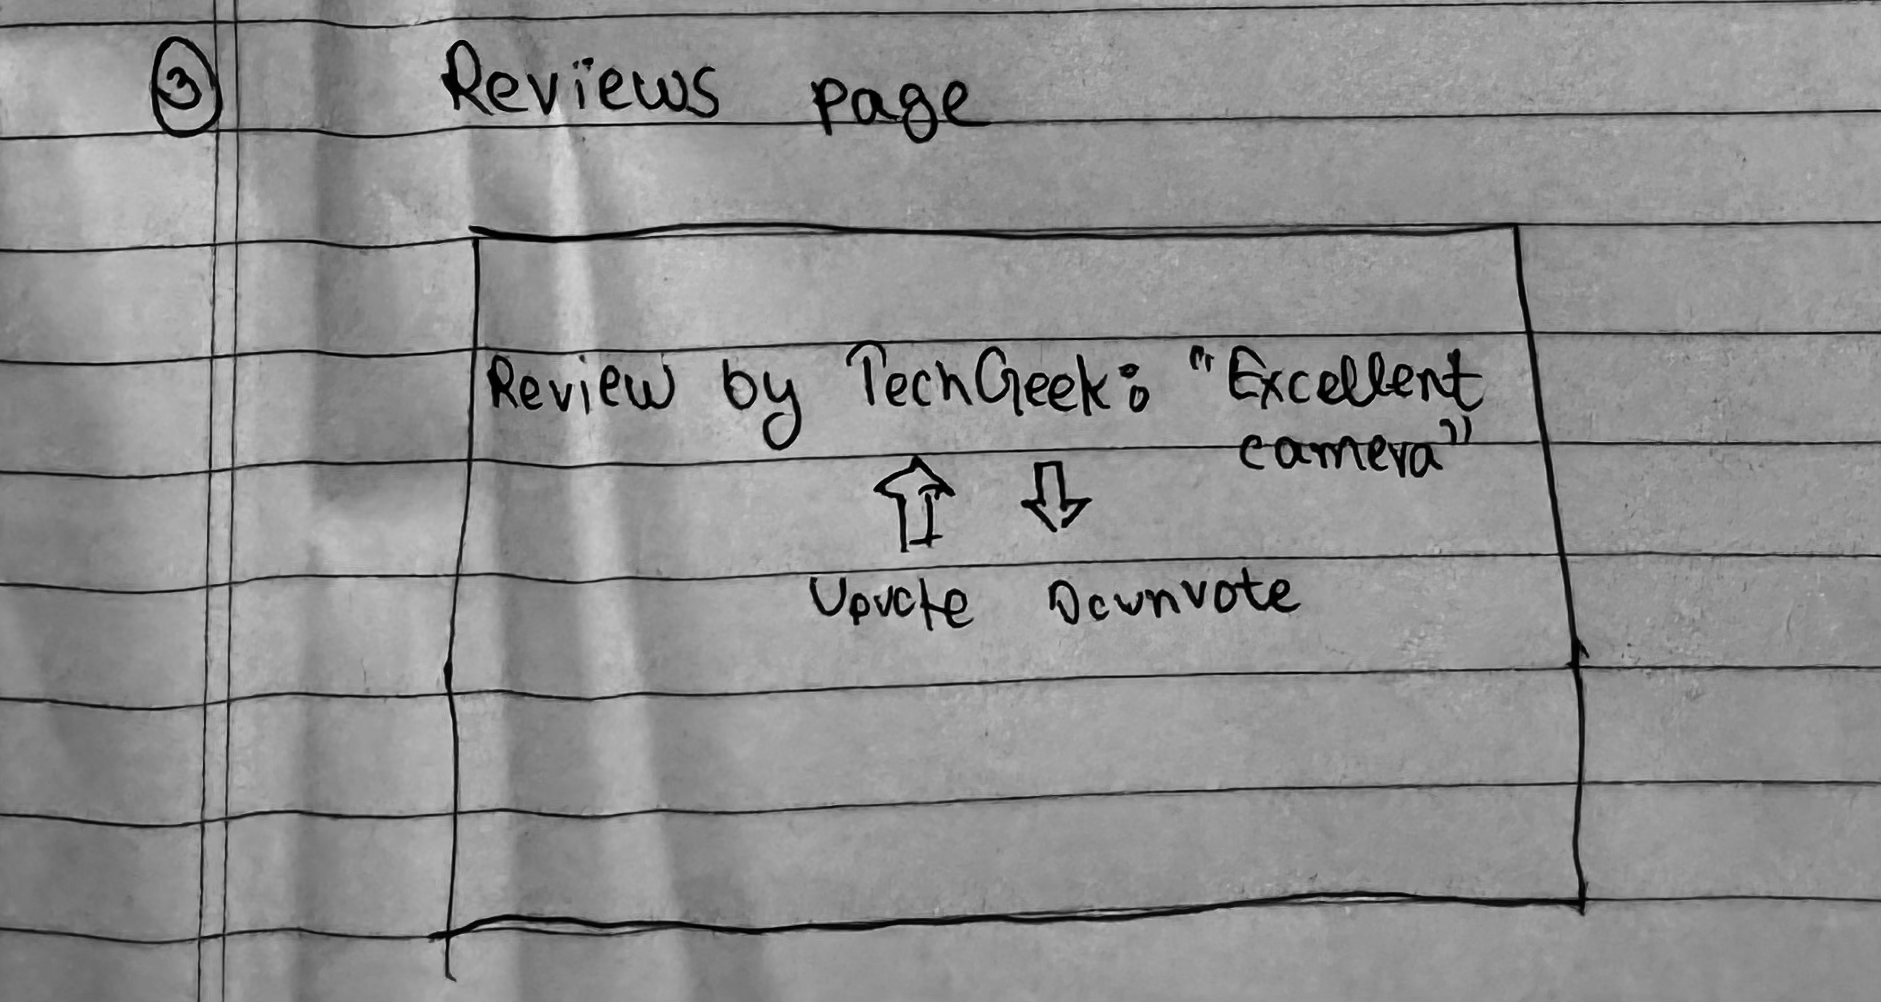 3 Reviews page
Review by TechGeek: "Excellent
camera"
Upvote Downvote